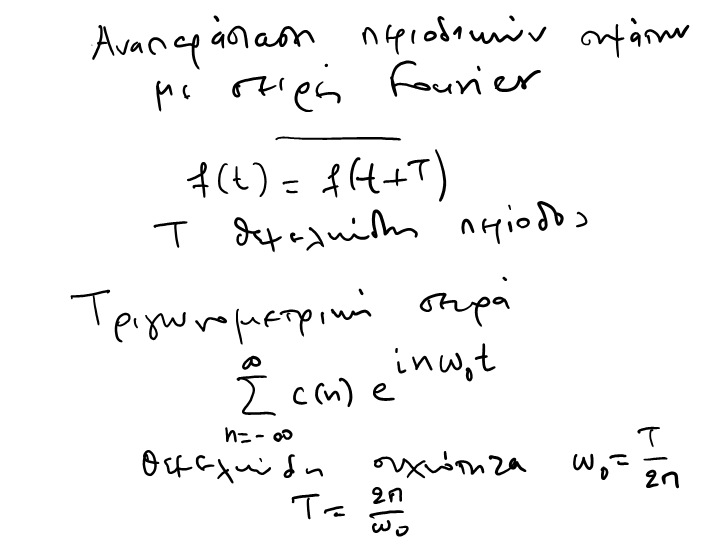 Αναπαράσταση περιοδικών σημάτων
με σειρές Fourier
f(t) = f(t+T)
T θεμελιώδης περίοδος
Τριγωνομετρική σειρά
∞
∑ c(n) e^{inω₀t}
n=-∞
Θεμελιώδη συχνότητα ω₀ = T/2π
T = 2π/ω₀